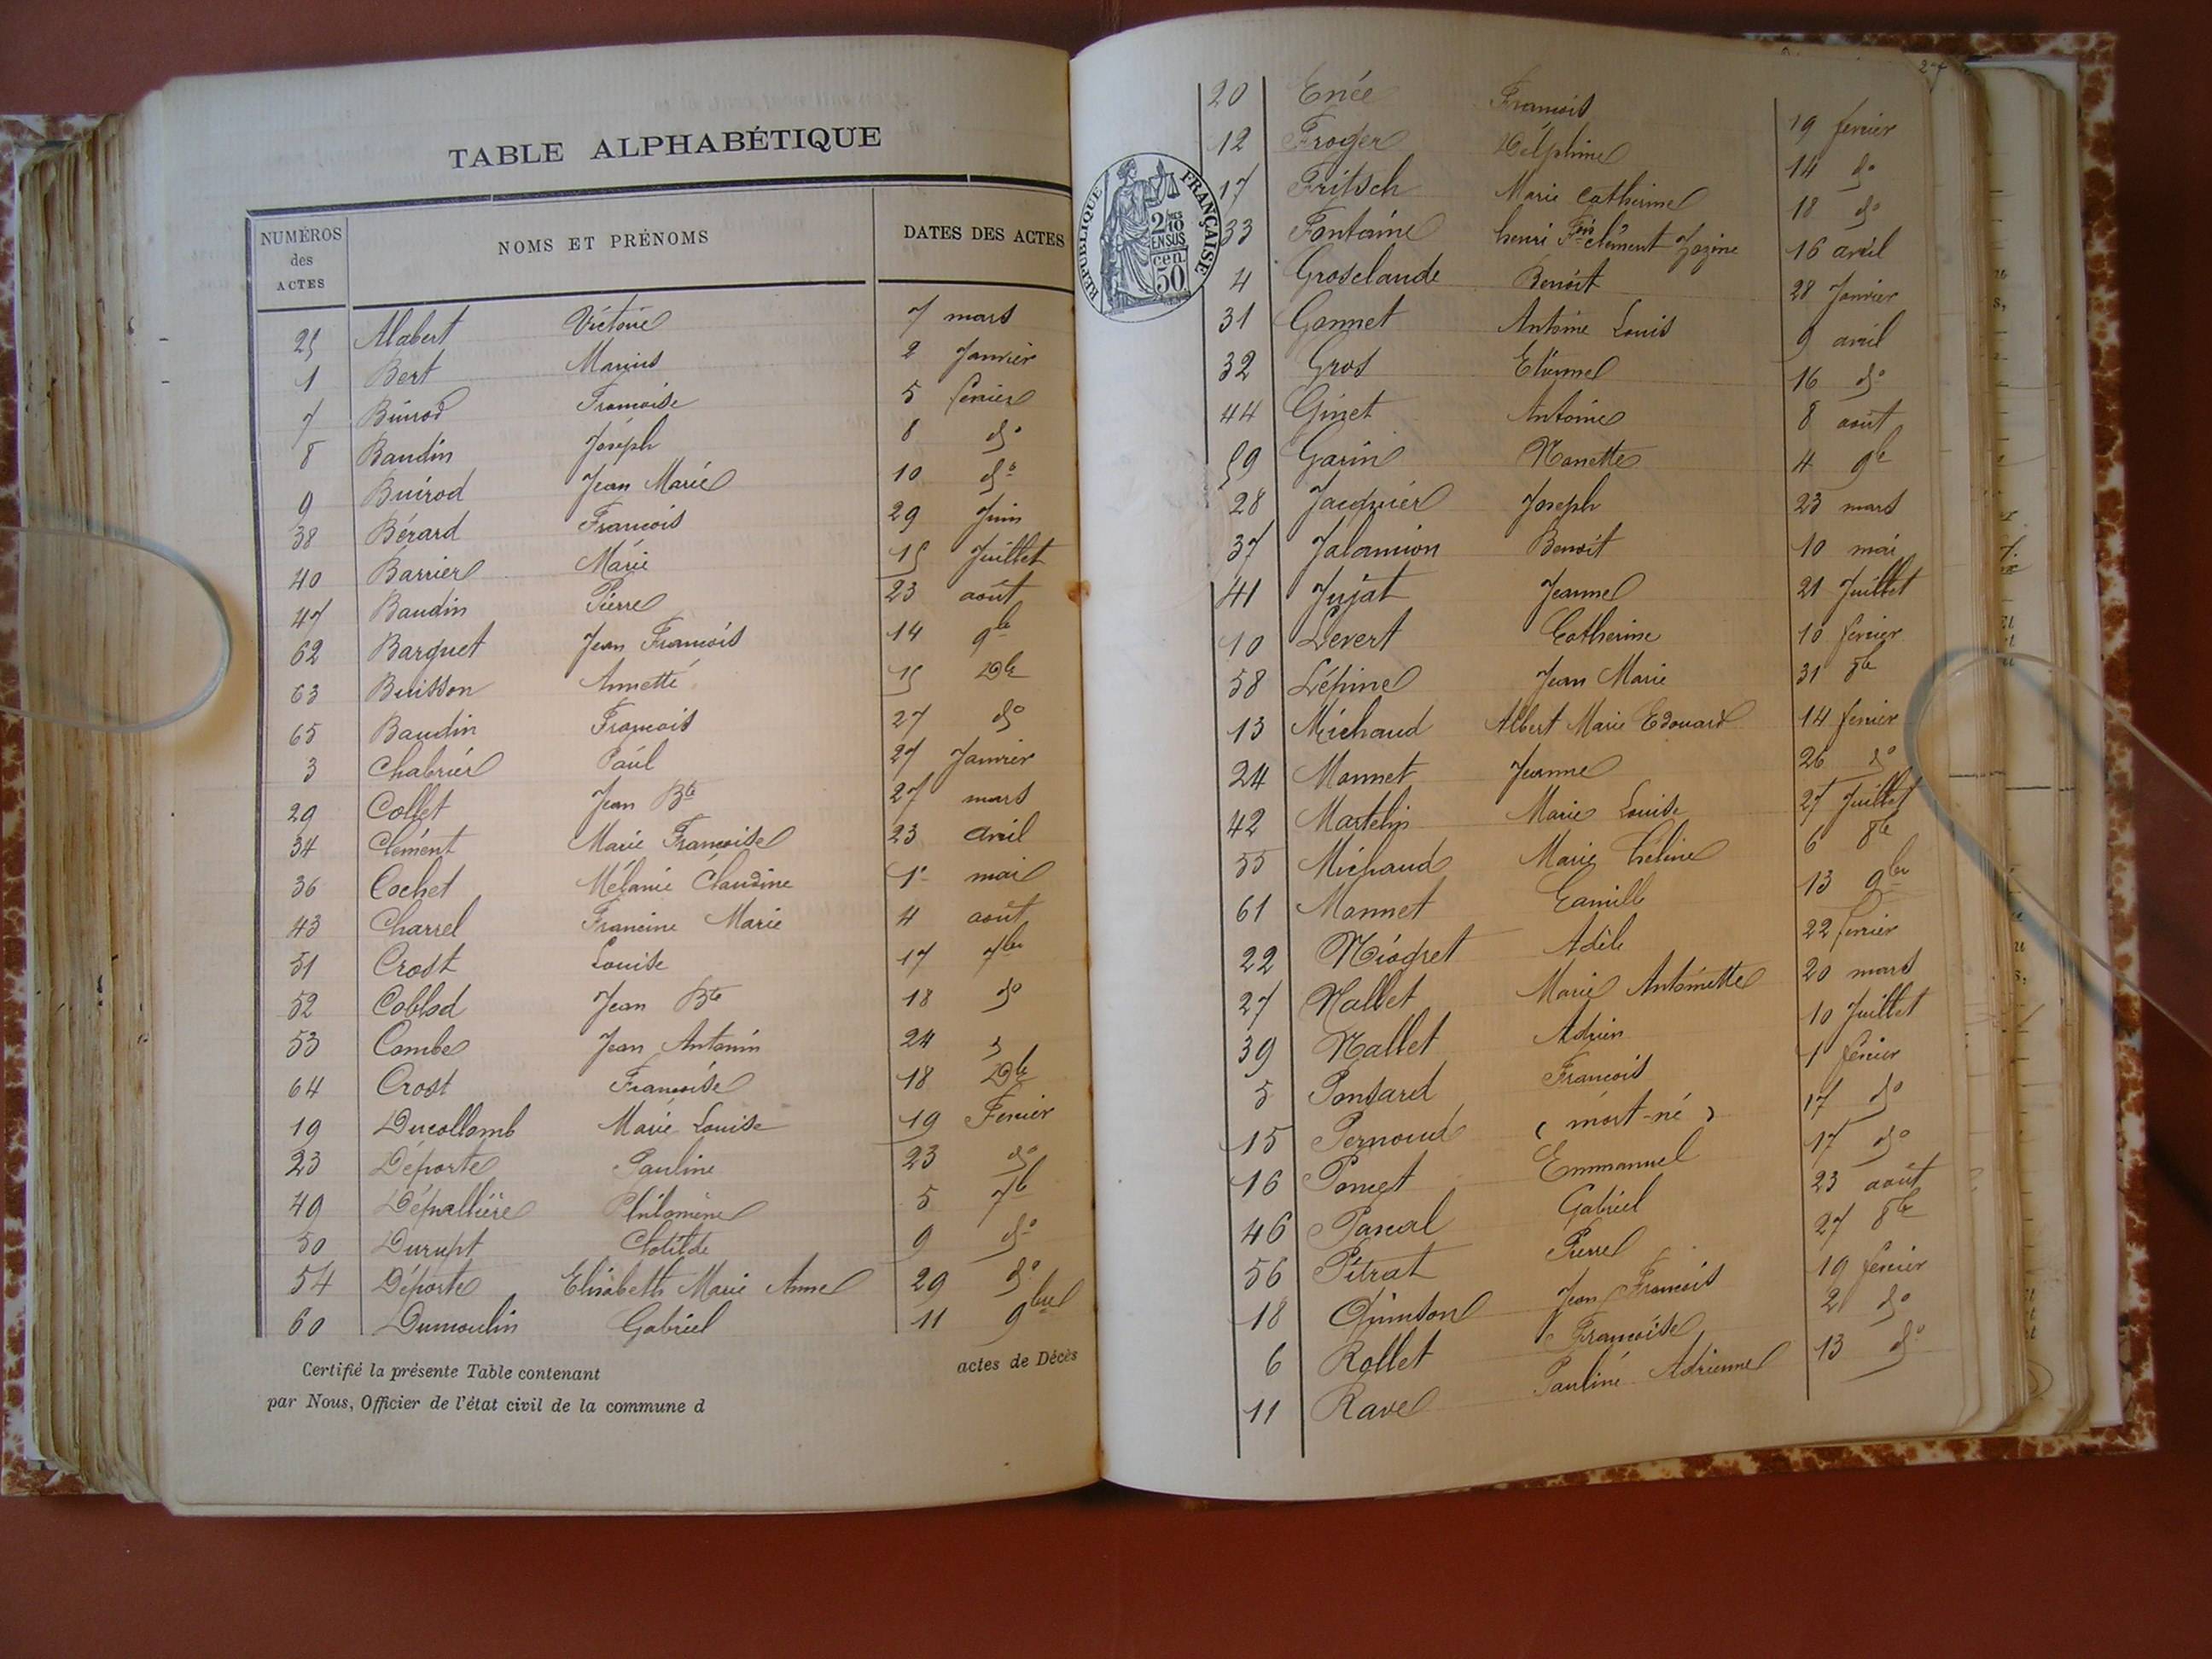 TABLE ALPHABÉTIQUE
NUMÉROS des ACTES NOMS ET PRÉNOMS DATES DES ACTES
25 Alabert Victoire 7 mars
1 Bert Marius 2 Janvier
7 Buirod Francoise 5 fevrier
8 Baudin Joseph 8 do
9 Buirod Jean Marie 10 do
38 Bérard Francois 29 Juin
40 Barrier Marie 15 Juillet
47 Baudin Pierre 23 août
62 Barquet Jean Francois 14 9bre
63 Buisson Annette 15 Dbre
65 Baudin Francois 27 do
3 Chabrier Paul 27 Janvier
29 Collet Jean Bte 27 mars
34 Clément Marie Francoise 23 avril
36 Cochet Mélanie Claudine 1er mai
43 Charrel Francine Marie 4 août
51 Crost Louise 17 7bre
52 Coblod Jean Bte 18 do
53 Combe Jean Antonin 24
64 Crost Francoise 18 Dbre
19 Ducollomb Marie Louise 19 Fevrier
23 Déporte Pauline 23 do
49 Philomène 5 7b
50 Durupt Clotilde 9 do
54 Déporte Elisabeth Marie Anne 29 do
60 Dumoulin Gabriel 11 9bre
Certifié la présente Table contenant actes de Décès
par Nous, Officier de l'état civil de la commune d
27
20 Enée Francois 19 fevrier
12 Froger Delphine 14 do
17 Fritsch Marie Catherine 18 do
33 Fontaine henri Fois clément 16 avril
4 Grosclaude Benoit 28 Janvier
31 Gonnet Antoine Louis 9 avril
32 Gros Etienne 16 do
44 Ginet Antoine 8 août
59 Garin Nanette 4 9bre
28 Jacquier Joseph 23 mars
37 Jalamion Benoit 10 mai
41 Jujat Jeanne 21 Juillet
10 Levert Catherine 10 fevrier
58 Lépine Jean Marie 31 8bre
13 Michaud Albert Marie Edouard 14 fevrier
24 Monnet Jeanne 26 do
42 Martelin Marie Louise 27 Juillet
55 Michaud Marie héline 6 8bre
61 Monnet Camille 13 9bre
22 Niogret Adèle 22 fevrier
27 Nallet Marie Antoinette 20 mars
39 Nallet Adrien 10 Juillet
5 Ponsard Francois 1 fevrier
15 Pernoud ( mort-né ) 17 do
16 Poncet Emmanuel 17 do
46 Pascal Gabriel 23 août
56 Pitrat Pierre 27 8bre
18 Quinson Jean Francois 19 fevrier
6 Rollet Francoise 2 do
11 Ravel Pauline Adrienne 13 do
RÉPUBLIQUE FRANÇAISE
2/10 EN SUS
50 cen.